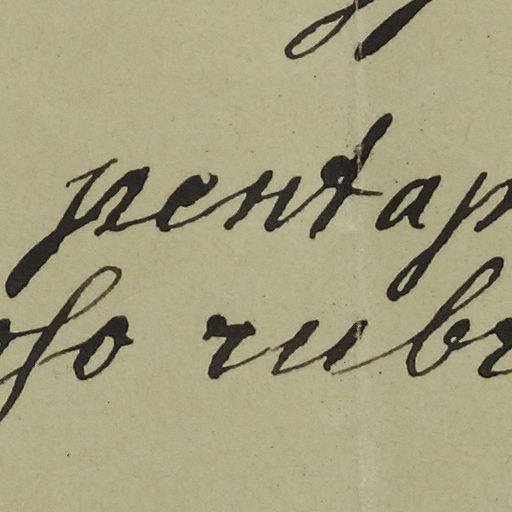 pentap
oso rubr